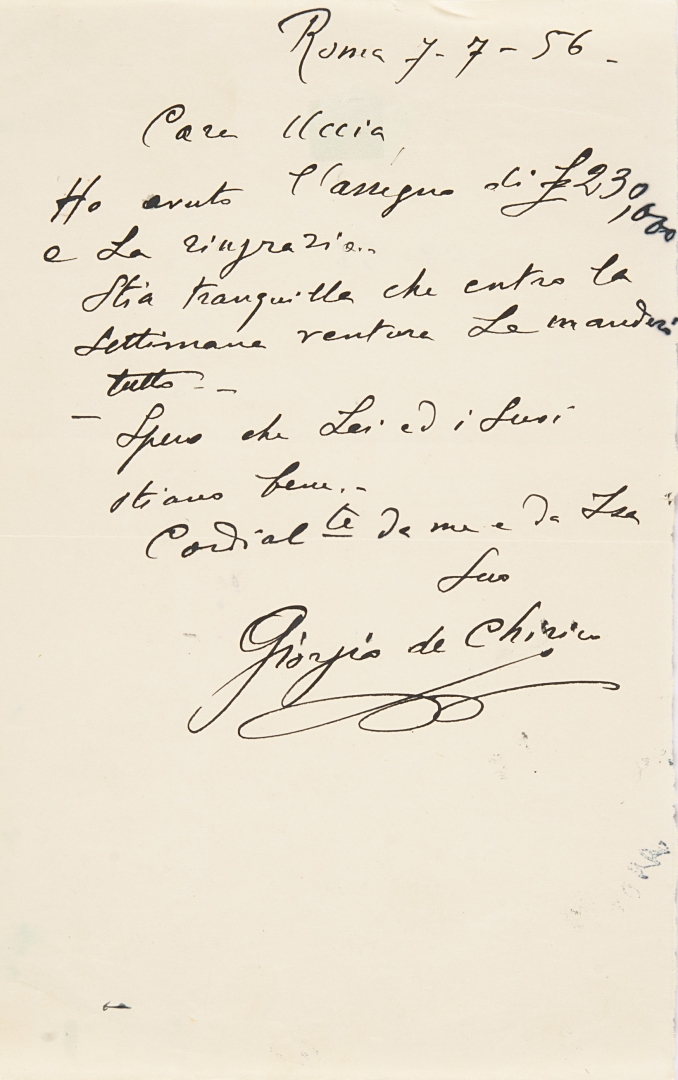 Roma 7-7-56-
Cara Uccia,
Ho avuto l'assegno di £230,000
e La ringrazio..
Stia tranquilla che entro la
settimana ventura Le manderò
tutto.-
- Spero che Lei ed i Suoi
stiano bene.-
Cordial te da me e da Isa
Suo
Giorgio de Chirico